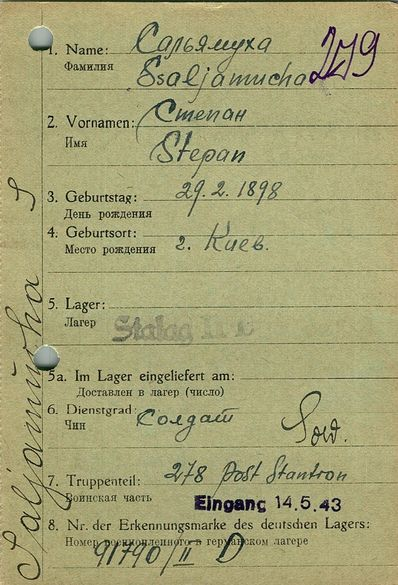 1. Name: Сальямуха
Фамилия
Ssaljamucha
279
2. Vornamen: Степан
Имя
Stepan
3. Geburtstag: 29.2.1898
День рождения
4. Geburtsort: г. Киев.
Место рождения
5. Lager:
Лагер
Stalag
5a. Im Lager eingeliefert am:
Доставлен в лагер (число)
6. Dienstgrad: Солдат
Чин
Sold.
7. Truppenteil: 278 Post
Воинская часть
Eingang 14.5.43
8. Nr. der Erkennungsmarke des deutschen Lagers:
Номер военнопленного в германском лагере
91790/II D
Saljamucha S